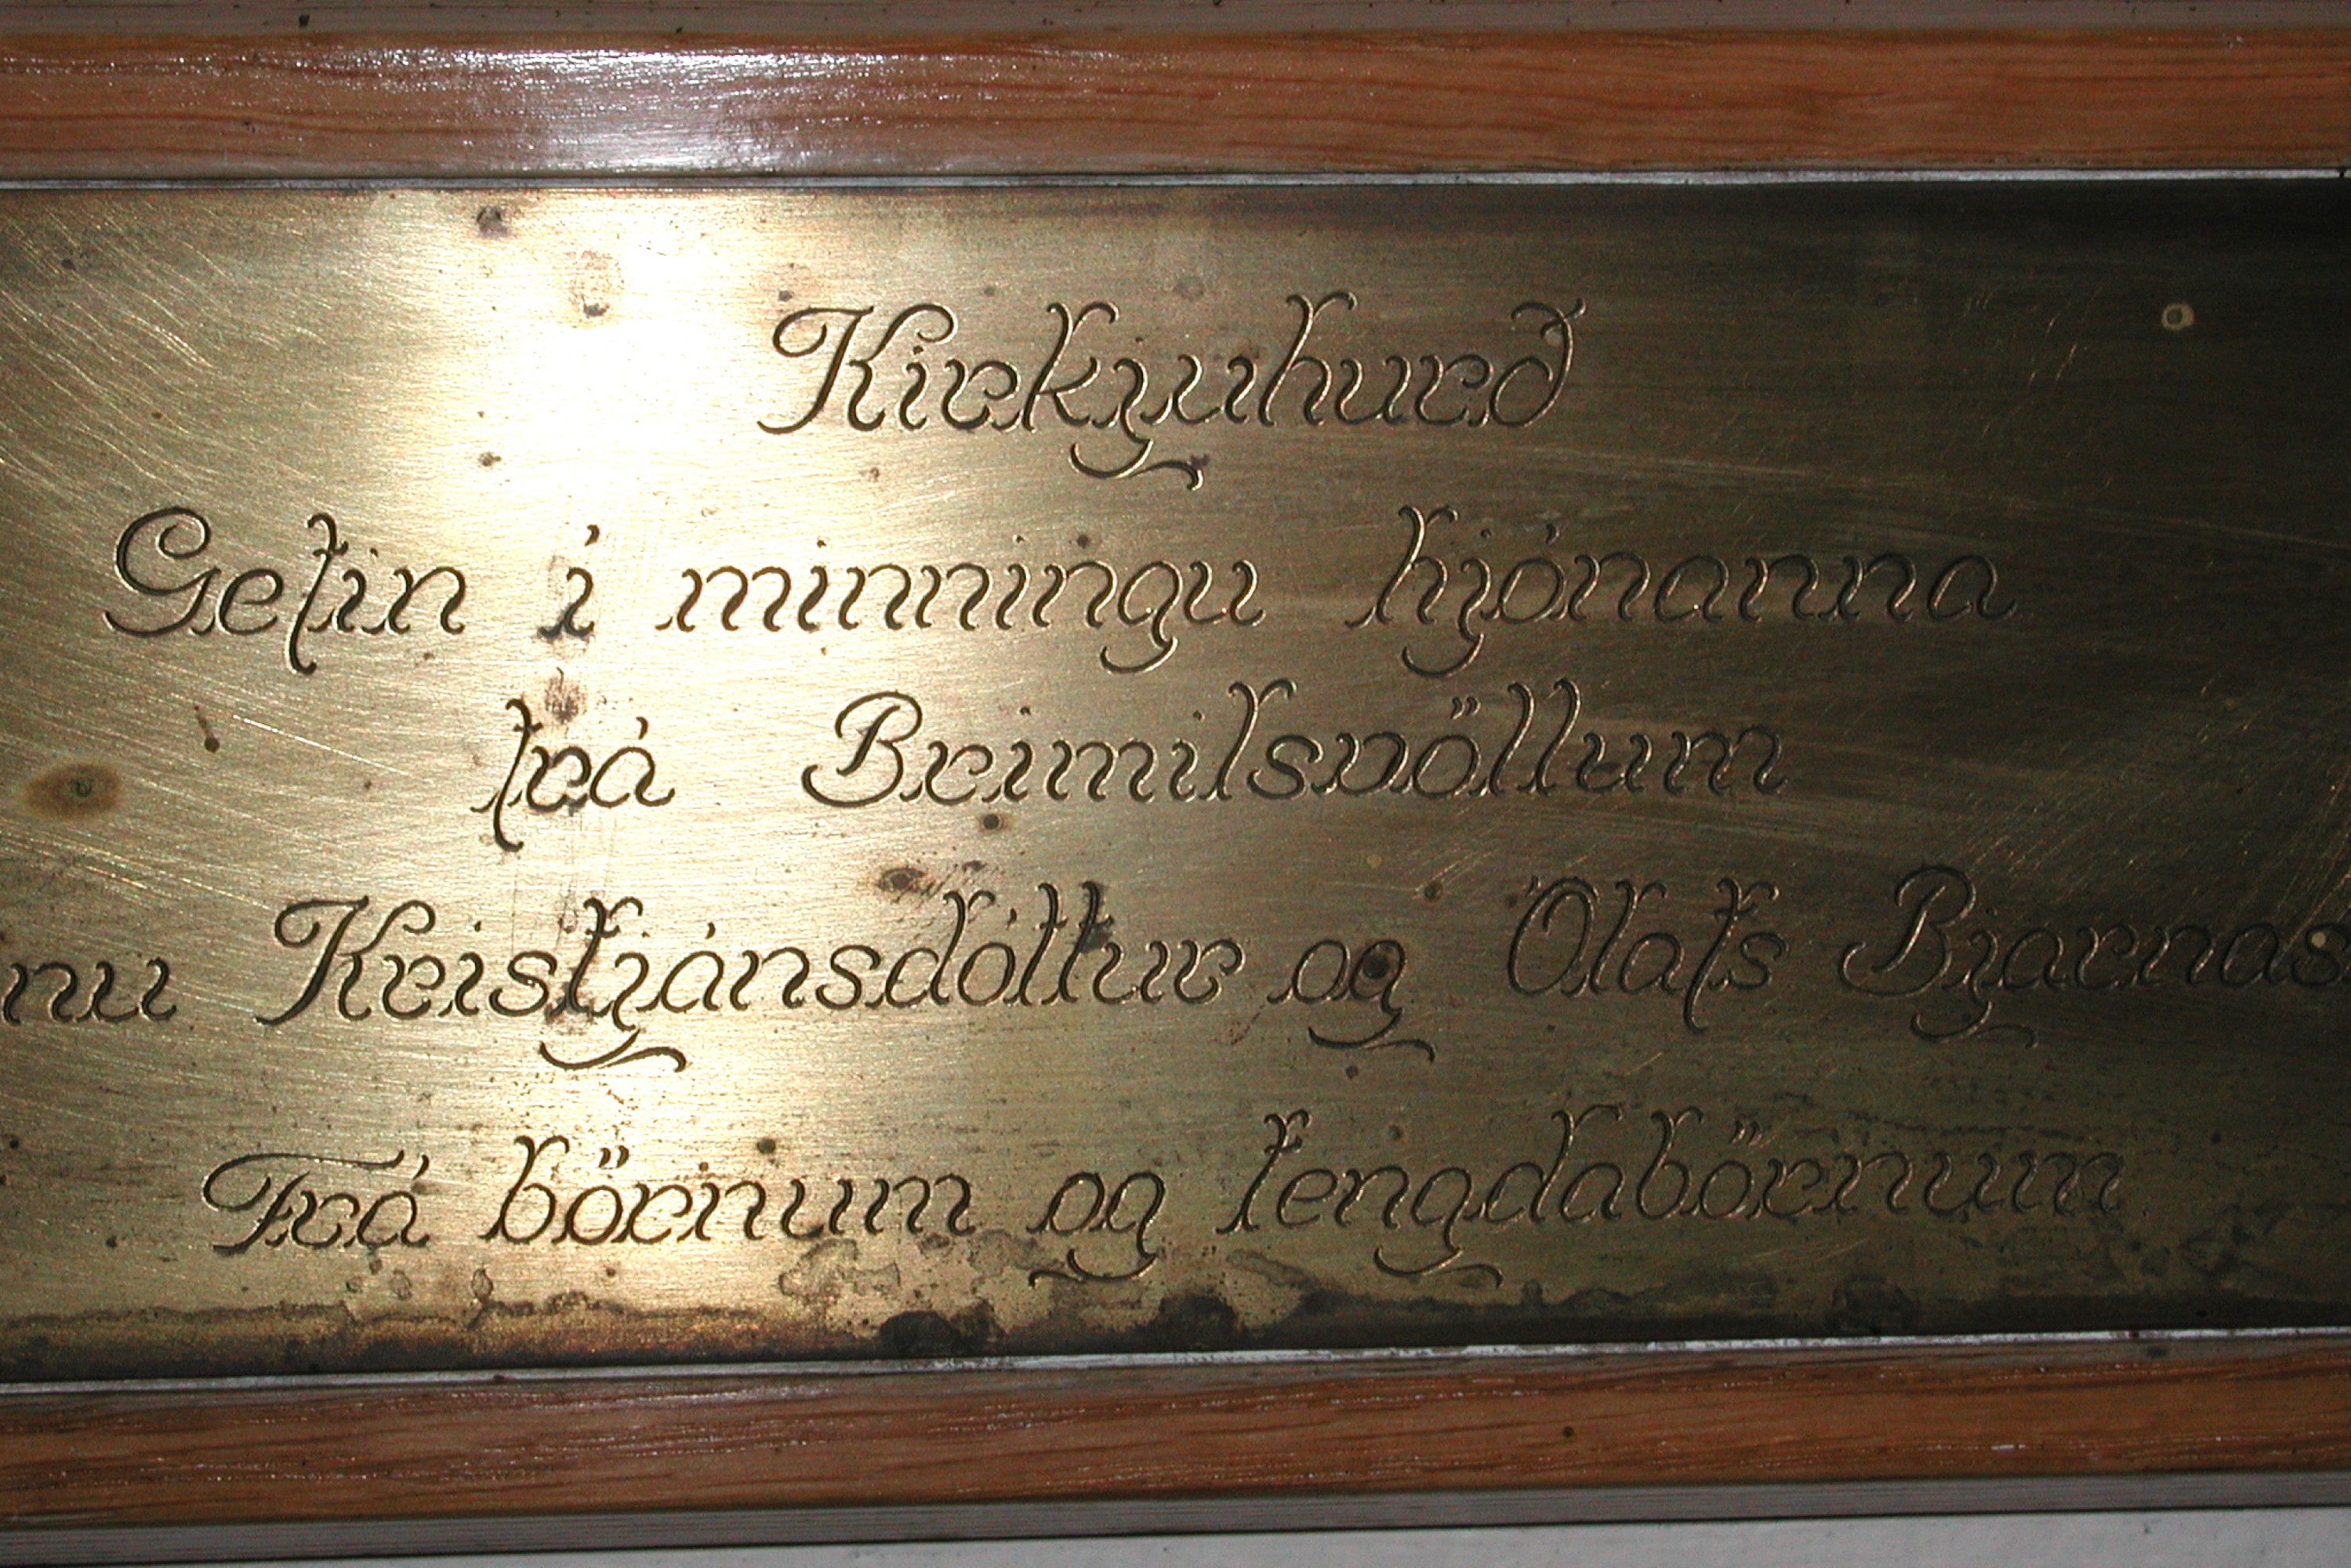 Kirkjuhurð
Gefin í minningu hjónanna
frá Brimilsvöllum
nu Kristjánsdóttur og Ólafs Bjarnas
Frá börnum og tengdabörnum